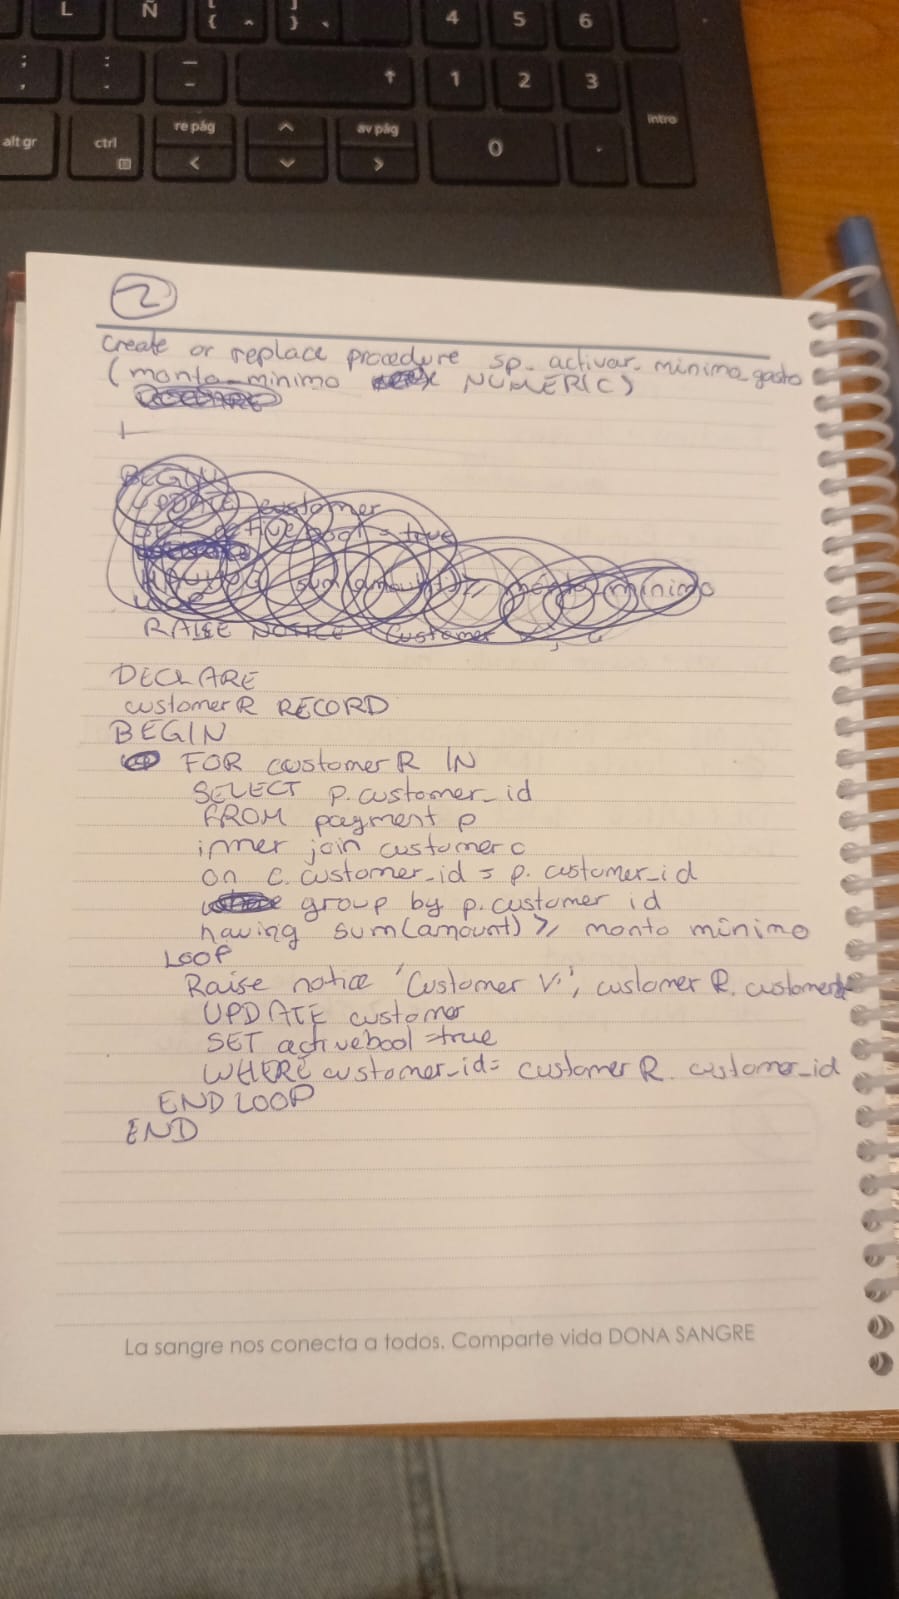 L Ñ [ { ^ ] } ` 4 5 6
; , : . _ - ↑ 1 2 3
alt gr ctrl re pág ^ av pág 0 . intro
< ˅ >
2
Create or replace procedure sp_activar_minimo_gasto
(monto_minimo NUMERIC)
BEGIN
UPDATE customer
= true
sum(amount) >= minimo
RAISE NOTICE Customer
DECLARE
customerR RECORD
BEGIN
FOR customerR IN
SELECT p.customer_id
FROM payment p
inner join customer c
on c.customer_id = p.customer_id
group by p.customer id
having sum(amount) >= monto minimo
LOOP
Raise notice 'Customer %', customerR.customer
UPDATE customer
SET activebool = true
WHERE customer_id = customerR.customer_id
END LOOP
END
La sangre nos conecta a todos. Comparte vida DONA SANGRE